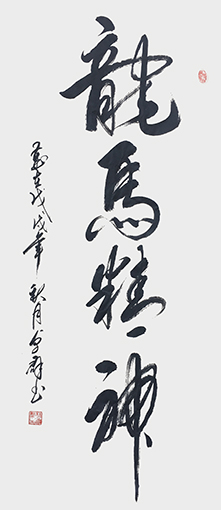 龍馬精神
歲在戊戌年 秋月 书